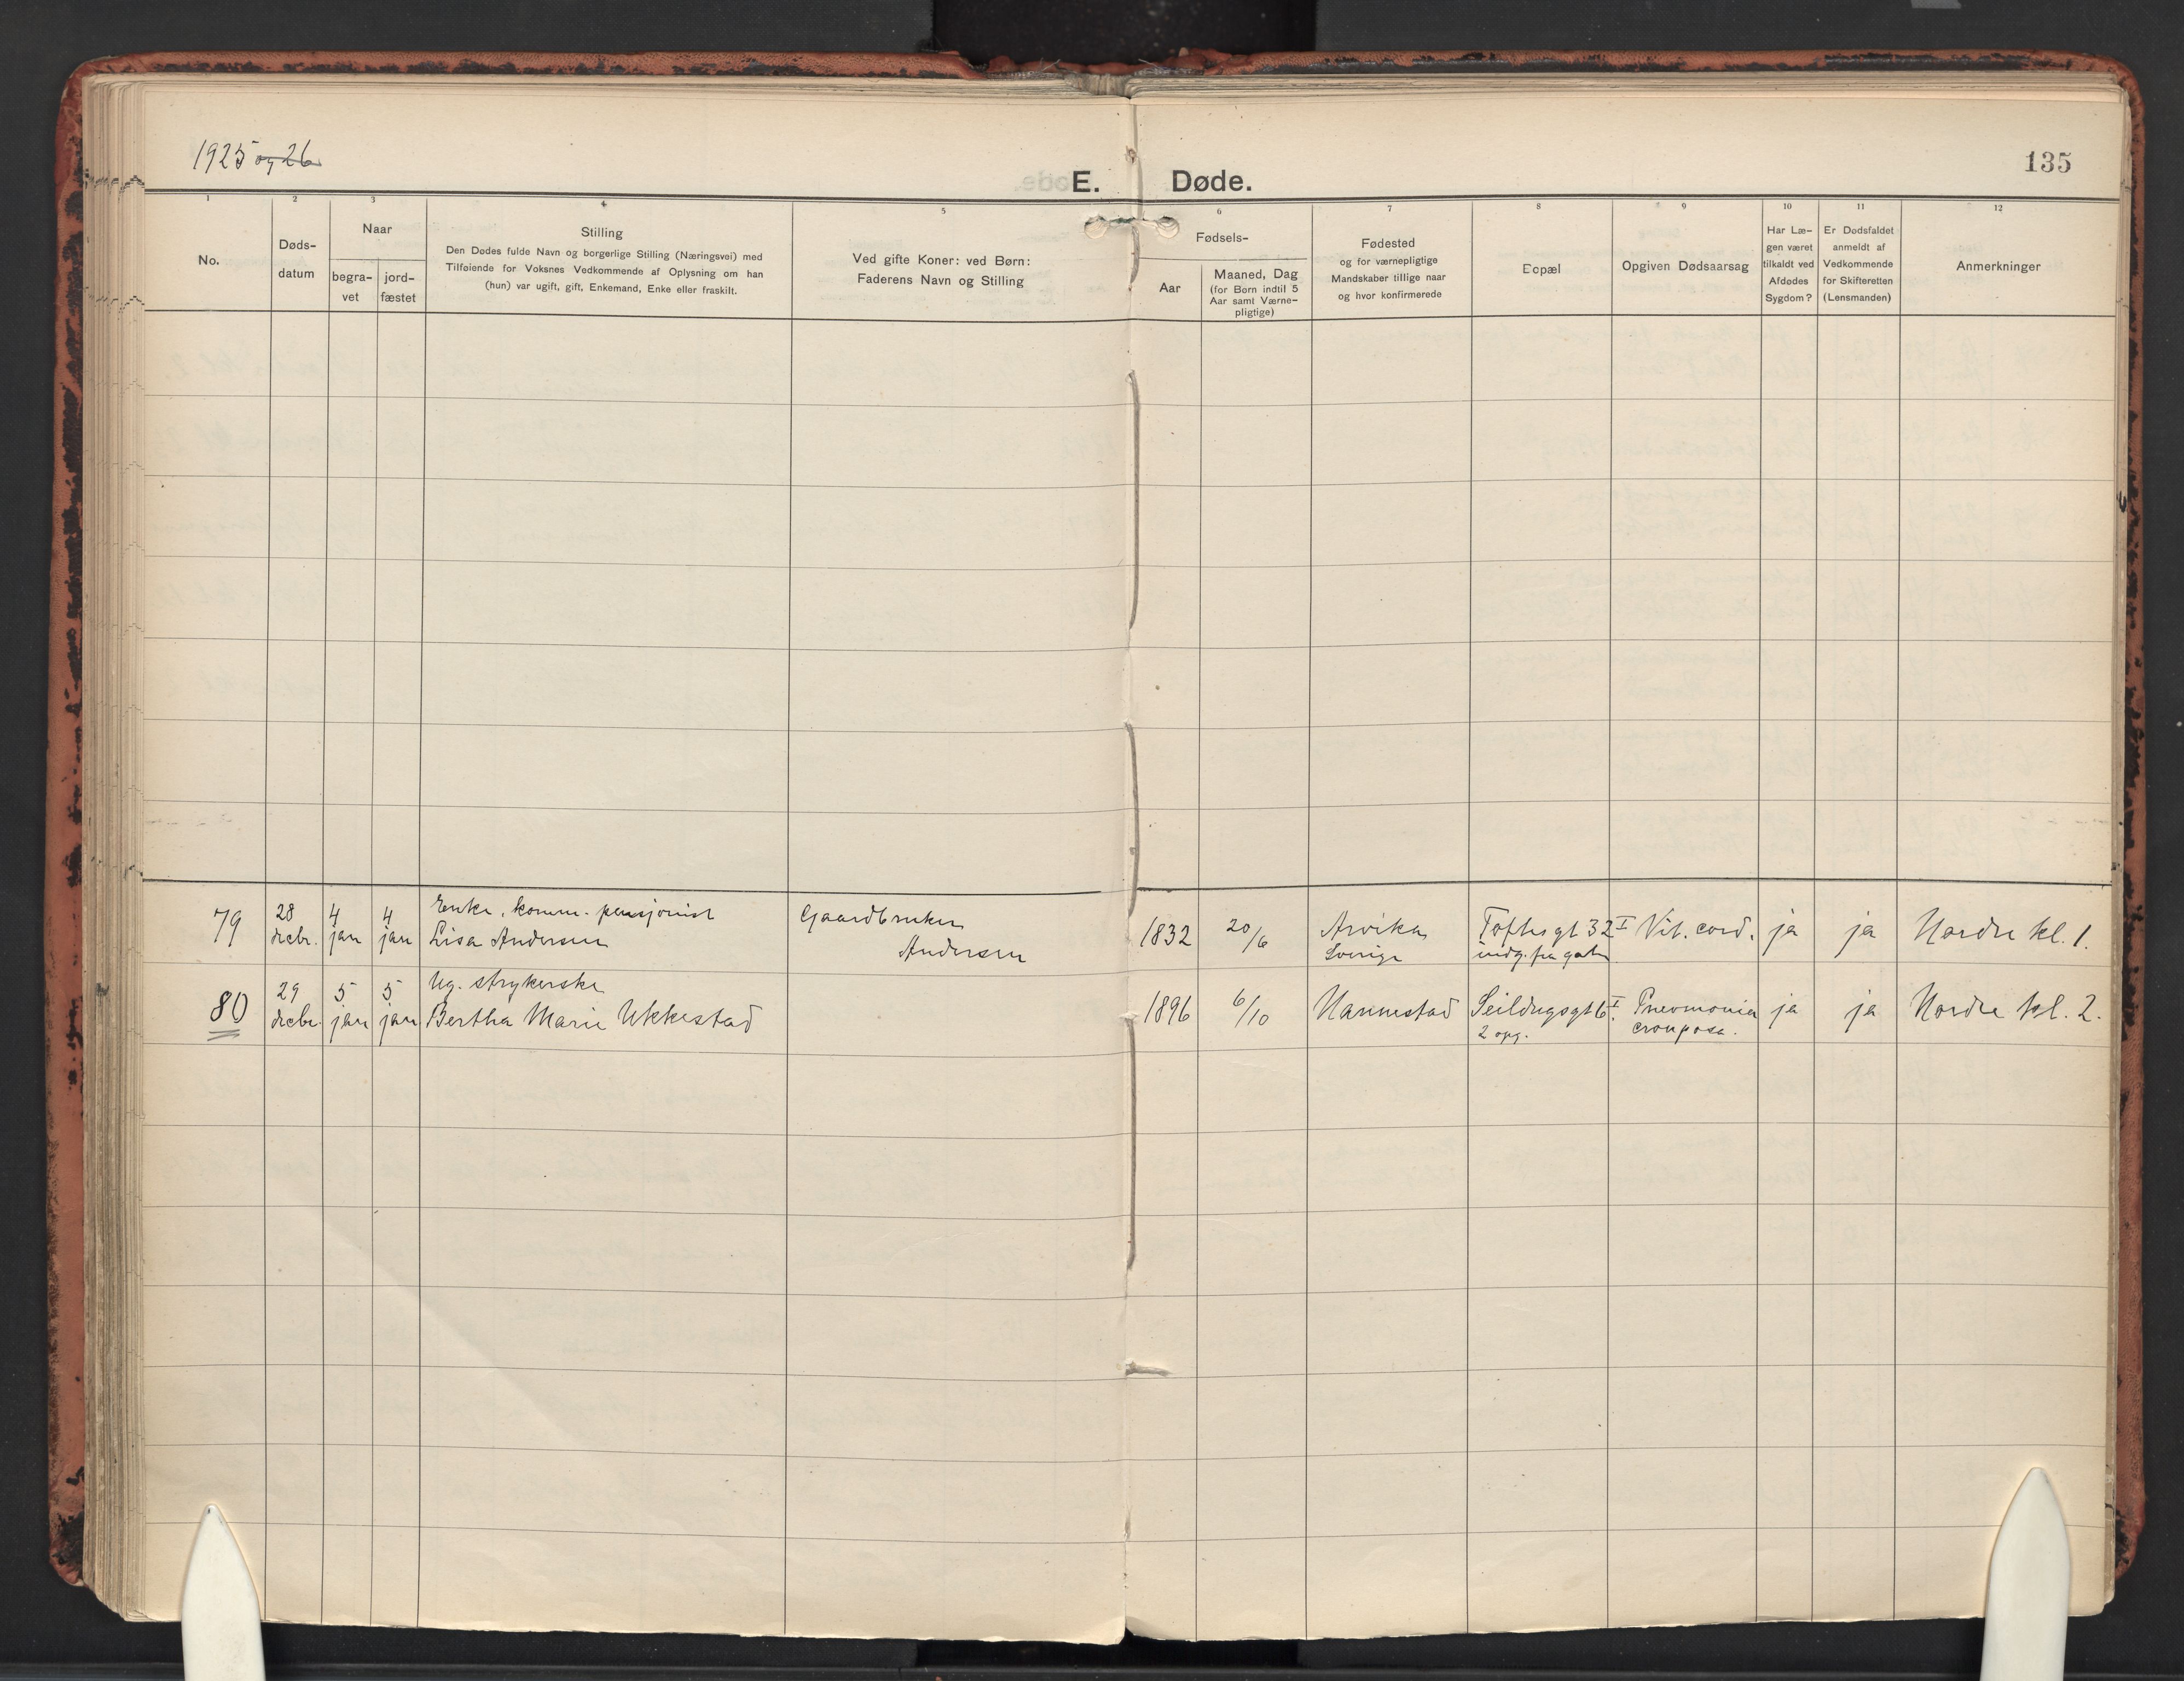 1925 og 26
135
E. Døde.
1 2 3 4 5 6 7 8 9 10 11 12
No.
Døds-
datum
Naar
begra-
vet
jord-
fæstet
Stilling
Den Dødes fulde Navn og borgerlige Stilling (Næringsvei) med
Tilføiende for Voksnes Vedkommende af Oplysning om han
(hun) var ugift, gift, Enkemand, Enke eller fraskilt.
Ved gifte Koner: ved Børn:
Faderens Navn og Stilling
Fødsels-
Aar
Maaned, Dag
(for Børn indtil 5
Aar samt Værne-
pligtige)
Fødested
og for værnepligtige
Mandskaber tillige naar
og hvor konfirmerede
Bopæl
Opgiven Dødsaarsag
Har Læ-
gen været
tilkaldt ved
Afdødes
Sygdom?
Er Dødsfaldet
anmeldt af
Vedkommende
for Skifteretten
(Lensmanden)
Anmerkninger
79
28
decbr.
4
jan
4
jan
Enke, komm. pensjonist
Lisa Andersen
Gaardbruker
Andersen
1832
20/6
Arvika
Sverige
Toftesgt 32 I
indg. fra gaten
Vit. cord.
ja
ja
Nordre kl. 1.
80
29
decbr.
5
jan
5
jan
Ug. strykerske
Bertha Marie Ukkestad
1896
6/10
Vannestad
Seildugsgt 6 I.
2 opg.
Pneomonia
crouposa.
ja
ja
Nordre kl. 2.